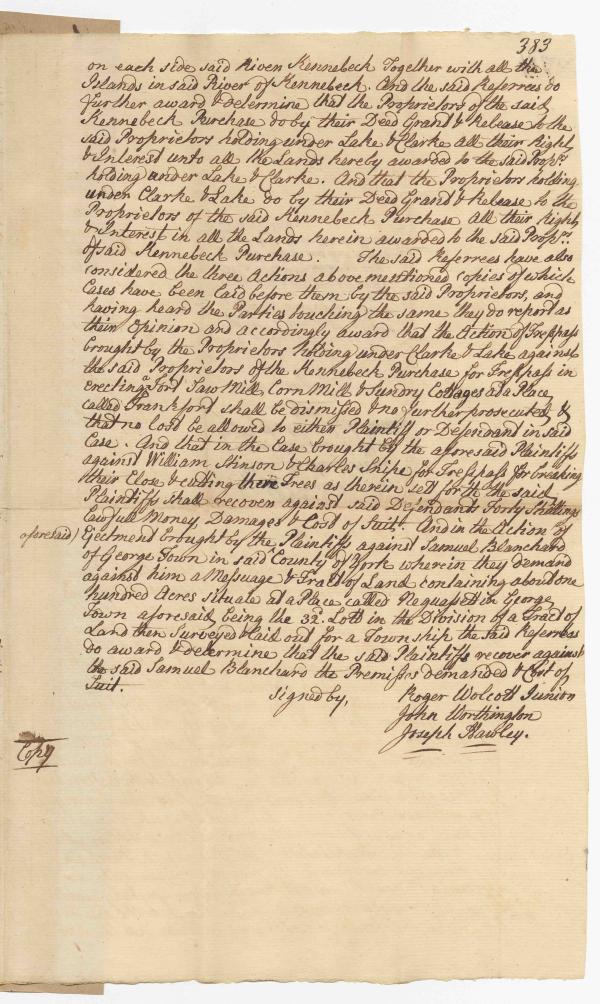 383
on each side said River Kennebeck Together with all the
Islands in said River of Kennebeck. And the said Referrees do
further award & determine that the Proprietors of the said
Kennebeck Purchase do by their Deed Grand & Release to the
said Proprietors holding under Lake & Clarke all their Right
& Interest unto all the Lands hereby awarded to the said Proprs.
holding under Lake & Clarke. And that the Proprietors holding
under Clarke & Lake do by their Deed Grand & Release to the
Proprietors of the said Kennebeck Purchase all their Right
& Interest in all the Lands herein awarded to the said Proprs.
of said Kennebeck Purchase. The said Referrees have also
considered the three Actions above mentioned copies of which
Cases have been laid before them by the said Proprietors, and
having heard the Parties touching the same they do report as
their Opinion and accordingly award that the Action of Trespass
brought by the Proprietors holding under Clarke & Lake against
the said Proprietors of the Kennebeck Purchase for Trespass in
erecting a Fort Saw Mill Corn Mill & Sundry Cottages at a Place
called Frankfort shall be dismissed & no further prosecuted, &
that no Cost be allowed to either Plaintiff or Defendant in said
Case. And that in the Case brought by the aforesaid Plaintiffs
against William Stinson & Charles Snipe for Tresspass for breaking
their Close & cutting their Trees as therein sett forth the said
Plaintiffs shall recover against said Defendants Forty Shillings
Lawfull Money Damages & Cost of Suit. And in the Action of
aforesaid) Ejectment brought by the Plaintiffs against Samuel Blanchard
of George Town in said County of York wherein they demand
against him a Messuage & Tract of Land containing about one
hundred Acres situate at a Place called Neguassett in George
Town aforesaid being the 32d. Lott in the Division of a Tract of
Land then Surveyed & laid out for a Township the said Referrees
do award & determine that the said Plaintiffs recover against
the said Samuel Blanchard the Premisses demanded & Cost of
Suit.
signed by, Roger Wolcott Junior
John Worthington
Joseph Hawley.
Copy